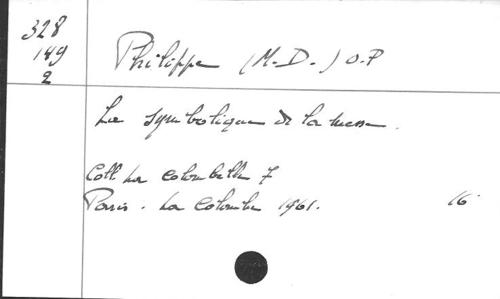 328
149
2
Philippe (M.-D.-) O.P
La symbolique de la messe.
Coll La colombelle 7
Paris. La Colombe 1961. 16